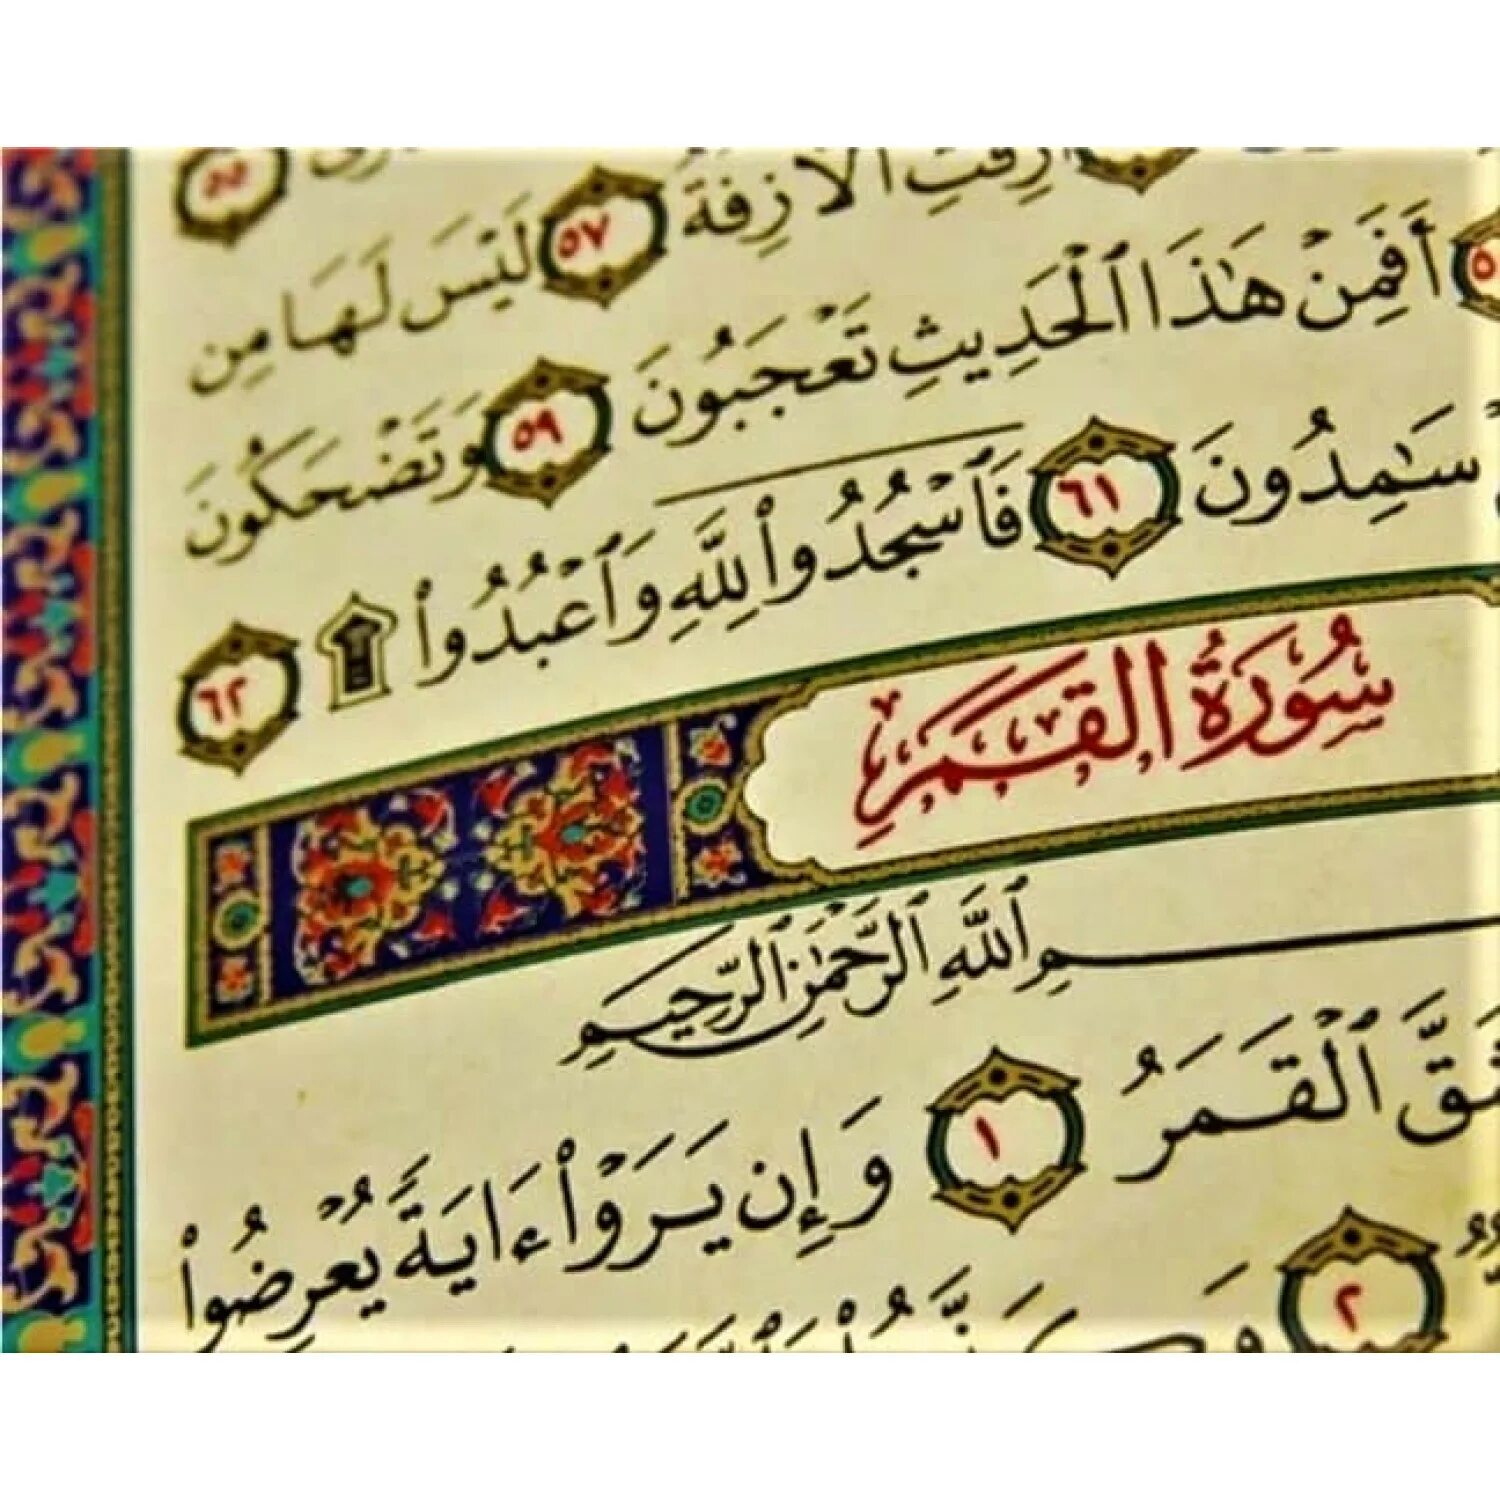 ٥٥
ٱلْأَزِفَةُ ٥٧ لَيْسَ لَهَا مِن
أَفَمِنْ هَٰذَا ٱلْحَدِيثِ تَعْجَبُونَ ٥٩ وَتَضْحَكُونَ
سَٰمِدُونَ ٦١ فَٱسْجُدُوا۟ لِلَّهِ وَٱعْبُدُوا۟ ۩ ٦٢
سُورَةُ القَمَرِ
ٱللَّهِ ٱلرَّحْمَٰنِ ٱلرَّحِيمِ
ٱلْقَمَرُ ١ وَإِن يَرَوْا۟ ءَايَةً يُعْرِضُوا۟
٢